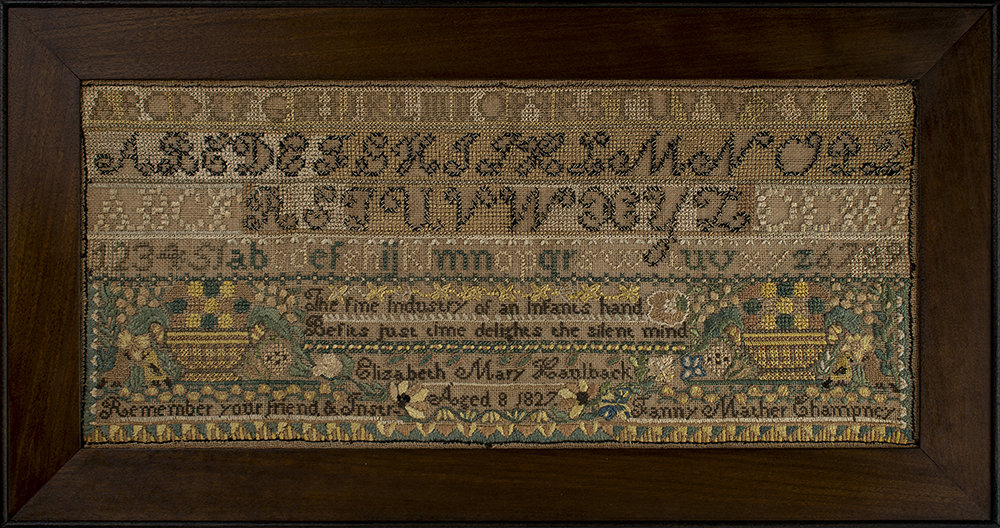 A B C D E F G H I J K L M N O P Q R S T U V W X Y Z
A B C D E F G H I J K L M N O P Q
R S T U V W X Y Z
1 2 3 4 5 a b ef ij mn qr uv
The fine Industry of an Infants hand
Befits just time delights the silent mind
Elizabeth Mary Haulback
Aged 8 1827
Remember your friend & Instrs Fanny Mather Champney